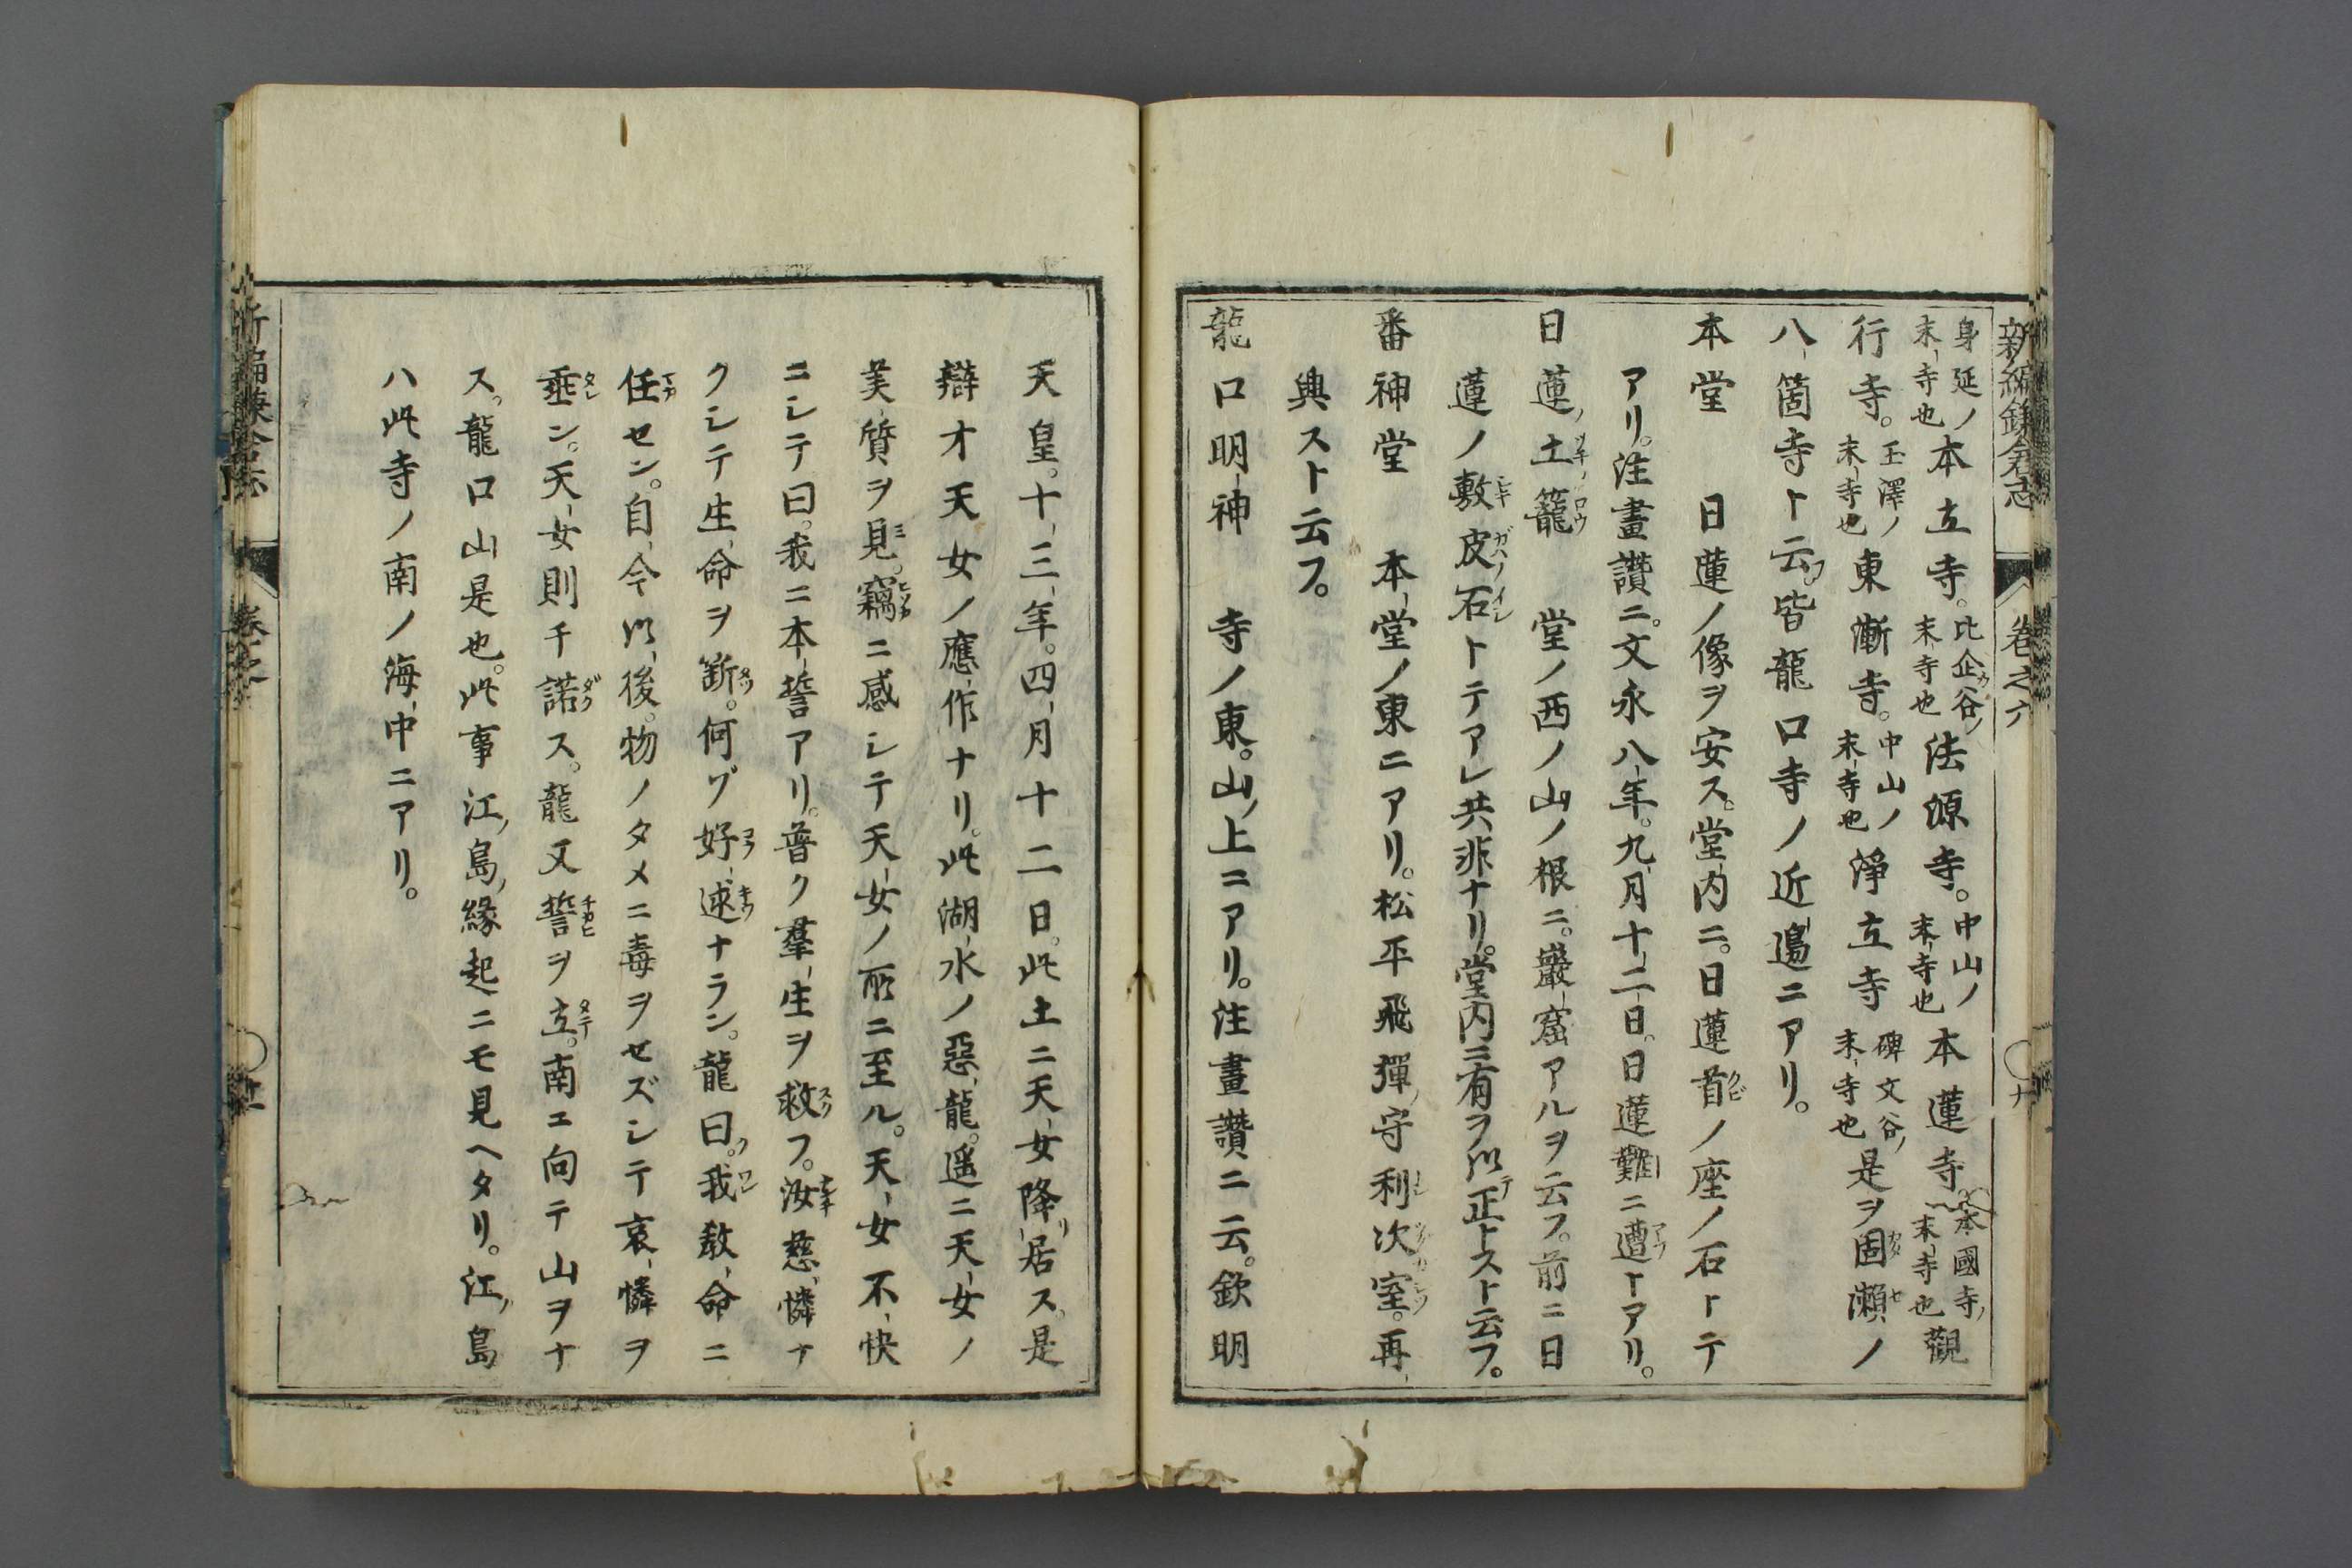 新編鎌倉志 卷之六 ○
身延ノ末寺也 本立寺。比企谷ノ末寺也 法源寺。中山ノ末寺也 本蓮寺 本國寺ノ末寺也 觀
行寺。玉澤ノ末寺也 東漸寺。中山ノ末寺也 淨立寺 碑文谷ノ末寺也 是ヲ固瀬ノ
八箇寺ト云フ。皆龍口寺ノ近邊ニアリ。
本堂 日蓮ノ像ヲ安ス。堂内ニ。日蓮首ノ座ノ石トテ
アリ。注畫讚ニ。文永八年。九月十二日。日蓮難ニ遭トアリ。
日蓮ノ土籠 堂ノ西ノ山ノ根ニ。巖窟アルヲ云フ。前ニ日
蓮ノ敷皮石トテアレ共非ナリ。堂内ニ有ヲ以テ正トスト云フ。
番神堂 本堂ノ東ニアリ。松平飛彈ノ守利次室。再
興スト云フ。
龍口明神 寺ノ東。山ノ上ニアリ。注畫讚ニ云。欽明
天皇。十三年。四月十二日。此土ニ天女降リ居ス。是
辯才天女ノ應作ナリ。此湖水ノ惡龍。遥ニ天女ノ
美質ヲ見。竊ニ感シテ天女ノ所ニ至ル。天女不快
ニシテ曰。我ニ本誓アリ。普ク羣生ヲ救フ。汝慈憐ナ
クシテ生命ヲ斷。何ゾ好逑ナラン。龍曰ク。我教命ニ
任セン。自今以後。物ノタメニ毒ヲセズシテ哀憐ヲ
垂ン。天女則チ諾ス。龍又誓ヲ立。南エ向テ山ヲナ
ス。龍口山是也。此事江ノ島ノ緣起ニモ見ヘタリ。江ノ島
ハ此寺ノ南ノ海中ニアリ。
新編鎌倉志